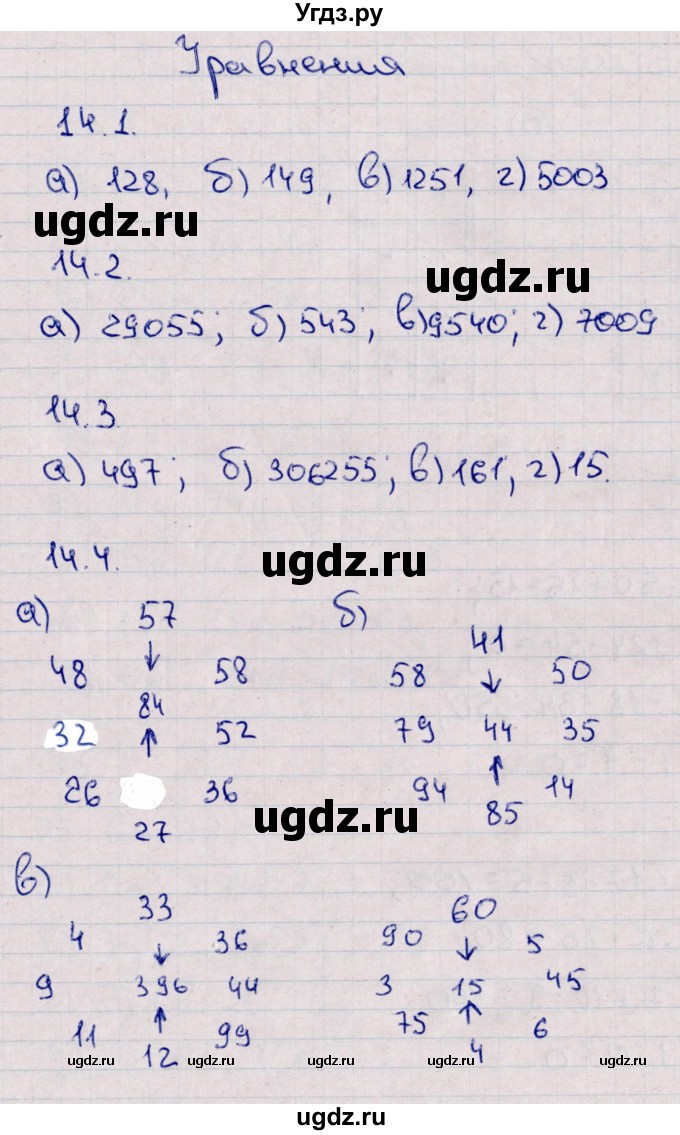 Угдз.ру
Уравнения
14.1.
а) 128, б) 149, в) 1251, г) 5003
ugdz.ru
14.2.
ugdz.ru
а) 29055; б) 543; в) 9540; г) 7009
14.3
а) 497; б) 306255; в) 161, г) 15.
14.4.
ugdz.ru
а) 57 б) 41
48 ↓ 58 58 ↓ 50
84
32 ↑ 52 79 44 35
26 36 94 ↑ 14
27 ugdz.ru 85
в)
33 60
4 ↓ 36 90 ↓ 5
9 396 44 3 15 45
11 ↑ 99 75 ↑ 6
12 4
ugdz.ru ugdz.ru ugdz.ru ugdz.ru ugdz.ru
ugdz.ru